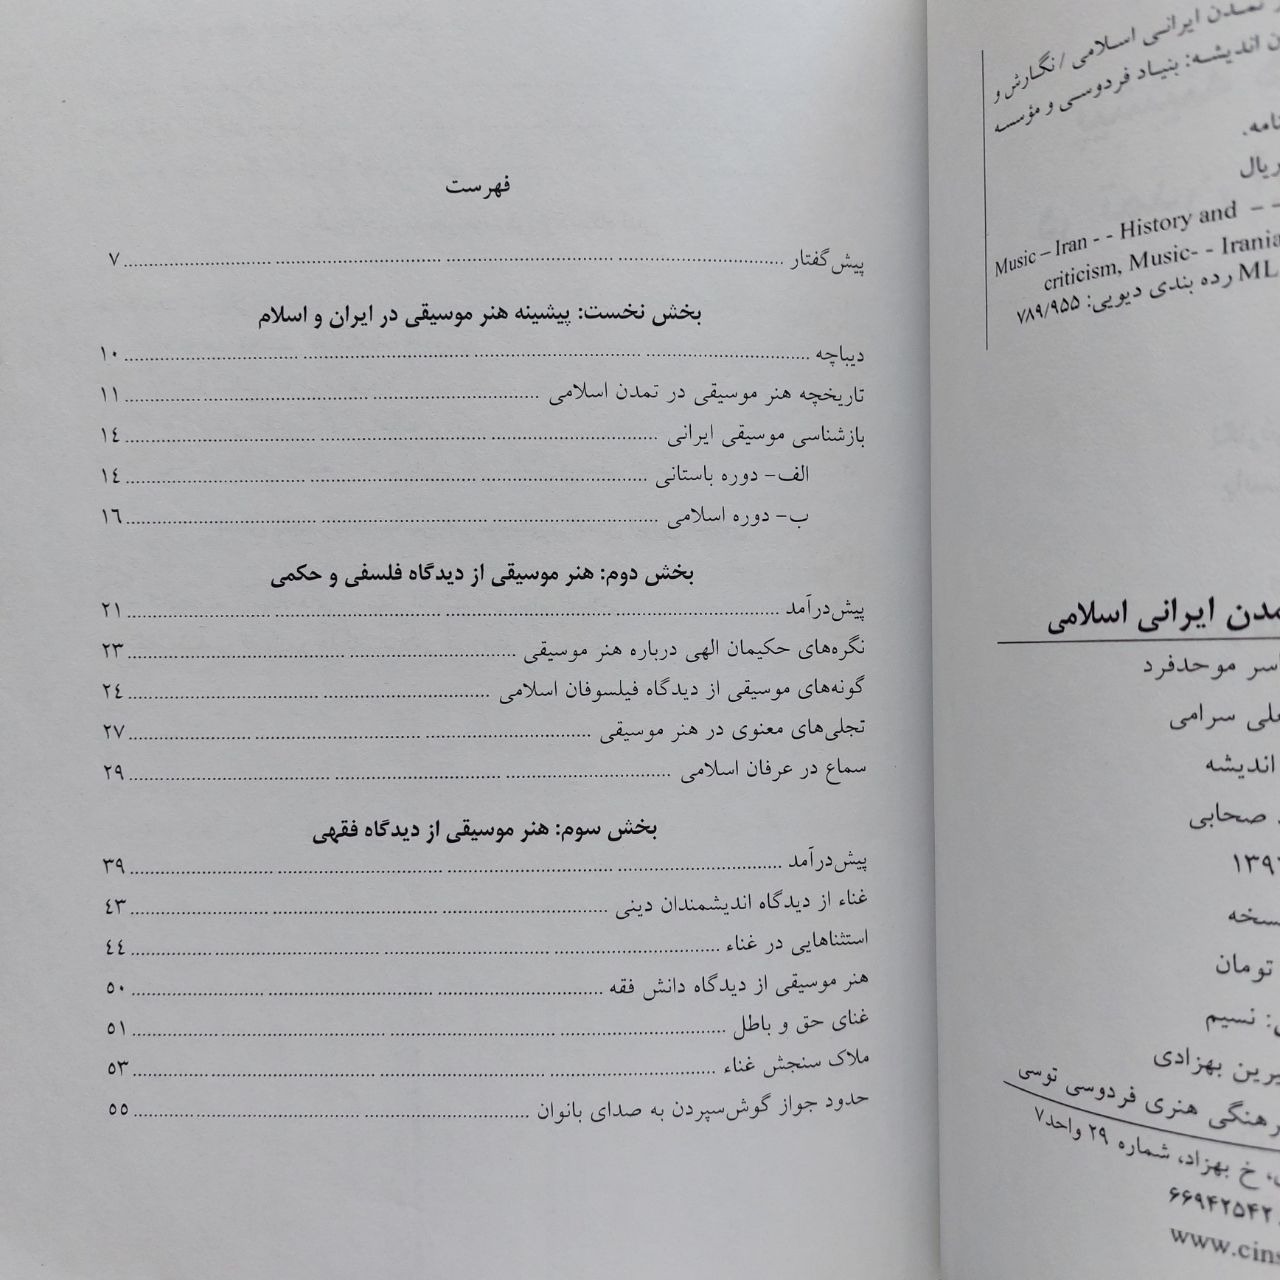 تمدن ایرانی اسلامی / نگارش و
اندیشه: بنیاد فردوسی و مؤسسه
ریال
Music – Iran - - History and - -
criticism, Music- - Irania
ML رده بندی دیویی: ۷۸۹/۹۵۵
ایرانی اسلامی
موحدفرد
سرامی
اندیشه
صحابی
تومان
نسیم
بهزادی
هنری فردوسی توسی
خ بهزاد، شماره ۲۹ واحد۷
۶۶۹۴۲۵۴۲
www.cins
فهرست
پیش‌گفتار ........ ۷
بخش نخست: پیشینه هنر موسیقی در ایران و اسلام
دیباچه ........ ۱۰
تاریخچه هنر موسیقی در تمدن اسلامی ........ ۱۱
بازشناسی موسیقی ایرانی ........ ۱٤
الف- دوره باستانی ........ ۱٤
ب- دوره اسلامی ........ ۱٦
بخش دوم: هنر موسیقی از دیدگاه فلسفی و حکمی
پیش‌درآمد ........ ۲۱
نگره‌های حکیمان الهی درباره هنر موسیقی ........ ۲۳
گونه‌های موسیقی از دیدگاه فیلسوفان اسلامی ........ ۲٤
تجلی‌های معنوی در هنر موسیقی ........ ۲۷
سماع در عرفان اسلامی ........ ۲۹
بخش سوم: هنر موسیقی از دیدگاه فقهی
پیش‌درآمد ........ ۳۹
غناء از دیدگاه اندیشمندان دینی ........ ٤۳
استثناهایی در غناء ........ ٤٤
هنر موسیقی از دیدگاه دانش فقه ........ ۵۰
غنای حق و باطل ........ ۵۱
ملاک سنجش غناء ........ ۵۳
حدود جواز گوش‌سپردن به صدای بانوان ........ ۵۵